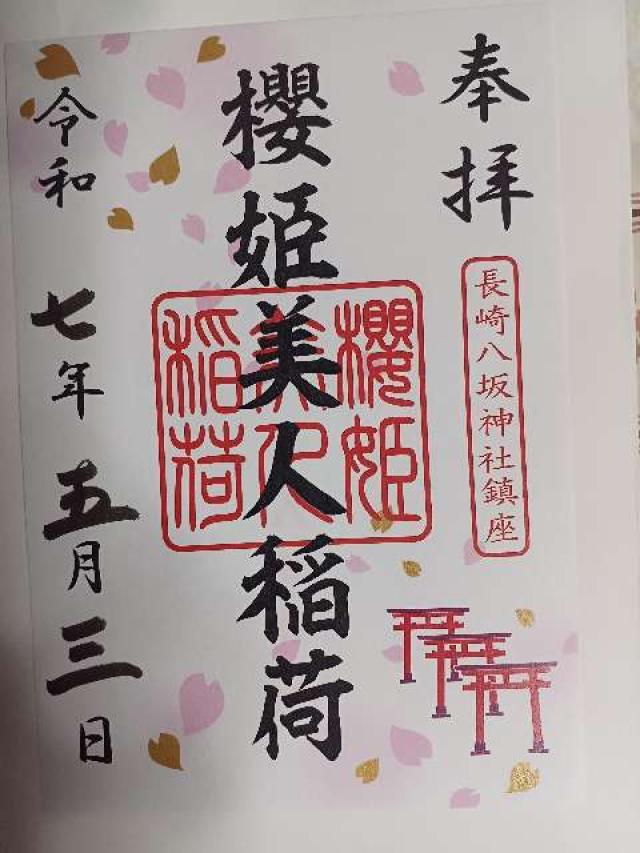 奉拝
長崎八坂神社鎮座
櫻姫美人稲荷
櫻姫
美人
稲荷
令和七年五月三日